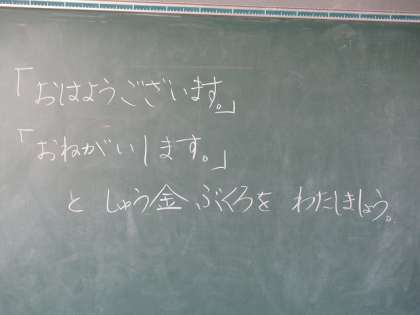 「おはようございます。」
「おねがいします。」
と しゅう金ぶくろを わたしましょう。